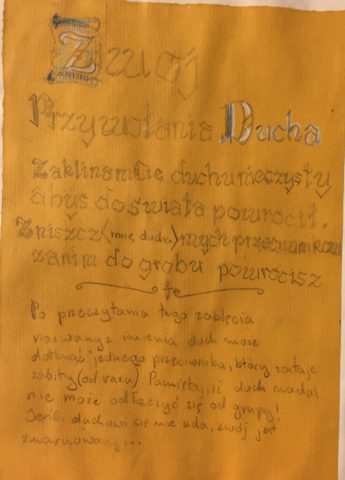 Zwój
Przywołania Ducha
Zaklinam Cię duchu nieczysty
abyś do świata powrócił.
Zniszcz (imię ducha) mych przeciwników
zanim do grobu powrócisz
Po przeczytaniu tego zaklęcia
nazwany z imienia duch może
dotknąć jednego przeciwnika, który zostaje
zabity (od razu) Pamiętaj, iż duch nadal
nie może odłączyć się od grupy!
Jeśli duchowi się nie uda, zwój jest
zmarnowany...